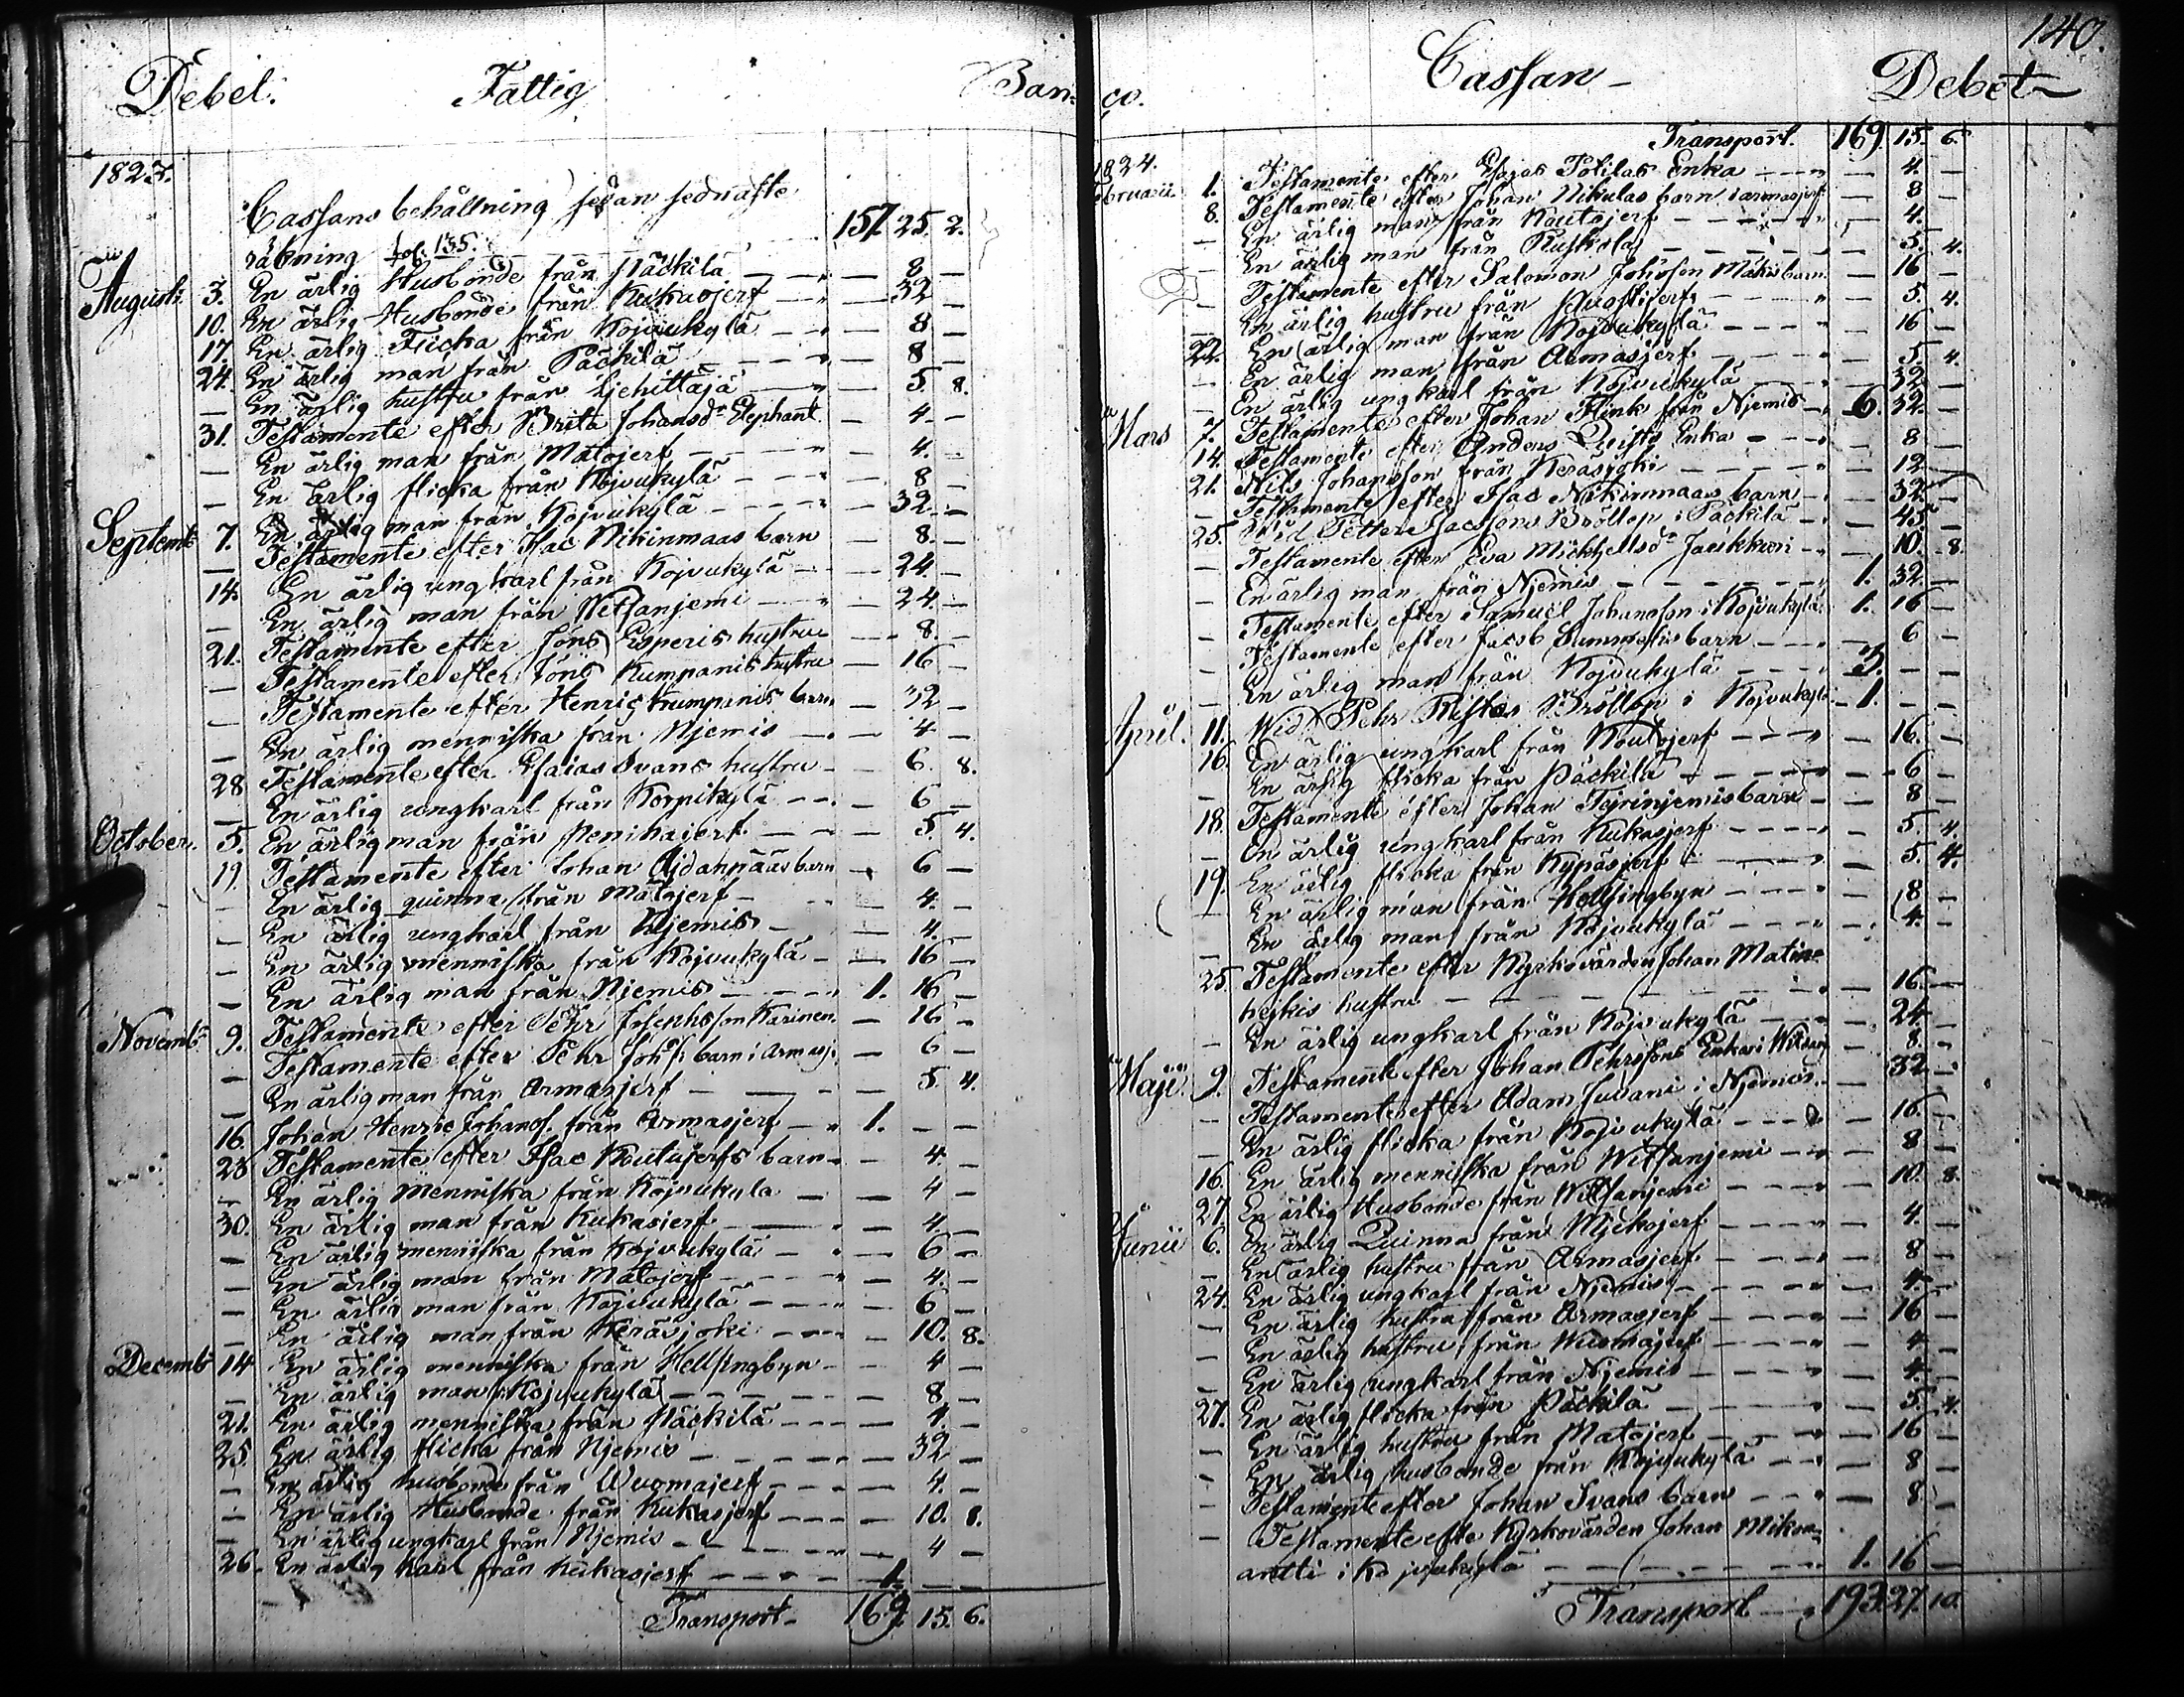 Debet. Fattig Ban=
1823.
Cassans behållning sedan sednaste
räkning fol: 135. 157. 25. 2.
Augusti 3. En ärlig Husbonde från Päckilä — 8 —
10. En ärlig Husbonde från Kukasjerf — 32 —
17. En ärlig Flicka från Kojvukylä — 8 —
24. En ärlig man från Päckilä — 8 —
— En ärlig hustru från — 5. 8.
31. Testamente efter Brita Johansdr Elephant — 4 —
— En ärlig man från Matojerf — 4. —
— En ärlig flicka från Kojvukylä — 8 —
Septembr 7. En ärlig man från Kojvukylä — 32 —
— Testamente efter Isac Nikinmaas barn — 8 —
14. En ärlig ungkarl från Kojvukylä — 24 —
— En ärlig man från Witsanjemi — 24 —
21. Testamente efter Jöns Esperis hustru — 8. —
— Testamente efter Jöns Kumpanis hustru — 16 —
— Testamente efter Henric Kumpanis barn — 32 —
— En ärlig menniska från Njemis — 4 —
28 Testamente efter Esaias Ivans hustru — 6. 8.
— En ärlig ungkarl från Korpikylä — 6 —
October. 5. En ärlig man från — 5. 4.
19. Testamente efter Johan barn — 6 —
— En ärlig quinna från Matojerf — 4. —
— En ärlig ungkarl från Njemis — 4. —
— En ärlig menniska från Kojvukylä — 16 —
— En ärlig man från Njemis — 1. 16 —
Novembr 9. Testamente efter Pehr Josephsson Karinen — 16 —
— Testamente efter Pehr Johs barn i Armasj. — 6 —
— En ärlig man från Armasjerf — 5. 4.
16. Johan Henric Johans. från Armasjerf — 1. — —
23 Testamente efter Isac Koutujerfs barn — 4. —
— En ärlig Menniska från Kojvukyla — 4 —
30. En ärlig man från Kukasjerf — 4. —
— En ärlig menniska från Kojvukylä — 6 —
— En ärlig man från Matojerf — 4. —
— En ärlig man från Kojvukylä — 6 —
— En ärlig man från Keräsjoki — 10. 8.
Decembr 14 En ärlig menniska från Hellsingbyn — 4 —
— En ärlig man i Kojvukylä — 8 —
21. En ärlig menniska från Päckilä — 4. —
25. En ärlig flicka från Njemis — 32 —
— En ärlig husbonde från Wuomajerf — 4. —
— En ärlig Husbonde från Kukasjerf — 10. 8.
— En ärlig ungkarl från Njemis — 4 —
26. En ärlig Karl från Kukasjerf — 1. — —
Transport — 169. 15. 6.
140.
co. Cassan — Debet —
Transport. 169. 15. 6.
1824.
Februarii 1. Testamente efter Esaias Potilas Enka — 4. —
8. Testamente efter Johan Nikulas barn i armasjerf — 8 —
— En ärlig man från Koutojerf — 4. —
— En ärlig man från Ruskola — 5. 4.
— Testamente efter Salomon Johnson Mäkis barn — 16 —
— En ärlig hustru från — 5. 4.
22. En ärlig man från Kojvukylä — 16 —
— En ärlig man från Armasjerf — 5. 4.
— En ärlig ungkarl från Kojvukylä — 32 —
Mars 7. Testamente efter Johan Flink från Njemis — 6. 32. —
14. Testamente efter Anders Quists Enka — 8 —
21. Nils Johansson från Keräsjoki — 12 —
— Testamente efter Isac Nikinmaas barn — 32. —
25. Wid Petter Isacssons Bröllop i Päckilä — 45. —
— Testamente efter Eva Mickhellsdr — 10. 8.
— En ärlig man från Njemis — 1. 32. —
— Testamente efter Samuel Johansson i Kojvukylä 1. 16 —
— Testamente efter Jacob Summelis barn — 6 —
— En ärlig man från Kojvukylä — 3. — —
April. 11. Wid Pehr Ristos Bröllop i Kojvukylä 1. — —
16. En ärlig ungkarl från Koutojerf — 16. —
— En ärlig flicka från Päckilä — 6 —
18. Testamente efter Johan barn — 8 —
— En ärlig ungkarl från Kukasjerf — 5. 4.
19. En ärlig flicka från Kypäsjerf — 5. 4.
— En ärlig man från Hellsingbyn — 8 —
— En ärlig man från Kojvukylä — 4. —
25. Testamente efter Kyrkovärden Johan Matine
hejkis hustru — 16. —
— En ärlig ungkarl från Kojvukylä — 24. —
Maji 9. Testamente efter Johan Pehrssons Enka i — 8. —
— Testamente efter Adam i Njemis — 32 —
— En ärlig flicka från Kojvukylä — 16. —
16. En ärlig menniska från Witsanjemi — 8 —
27 En ärlig Husbonde från Witsanjemi — 10. 8.
Junii 6. En ärlig Quinna från Mjekojerf — 4. —
— En ärlig hustru från Armasjerf — 8 —
24. En ärlig ungkarl från Njemis — 4. —
— En ärlig hustru från Armasjerf — 16 —
— En ärlig hustru från Wuomajerf — 4 —
— En ärlig ungkarl från Njemis — 4. —
27. En ärlig flicka från Päckilä — 5. 4.
— En ärlig hustru från Matojerf — 16 —
— En ärlig husbonde från Kojvukylä — 8 —
— Testamente efter Johan Ivans barn — 8. —
— Testamente efte Kyrkovärden Johan Mikon
antti i Kojvukylä — 1. 16 —
Transport — 193. 27. 10.